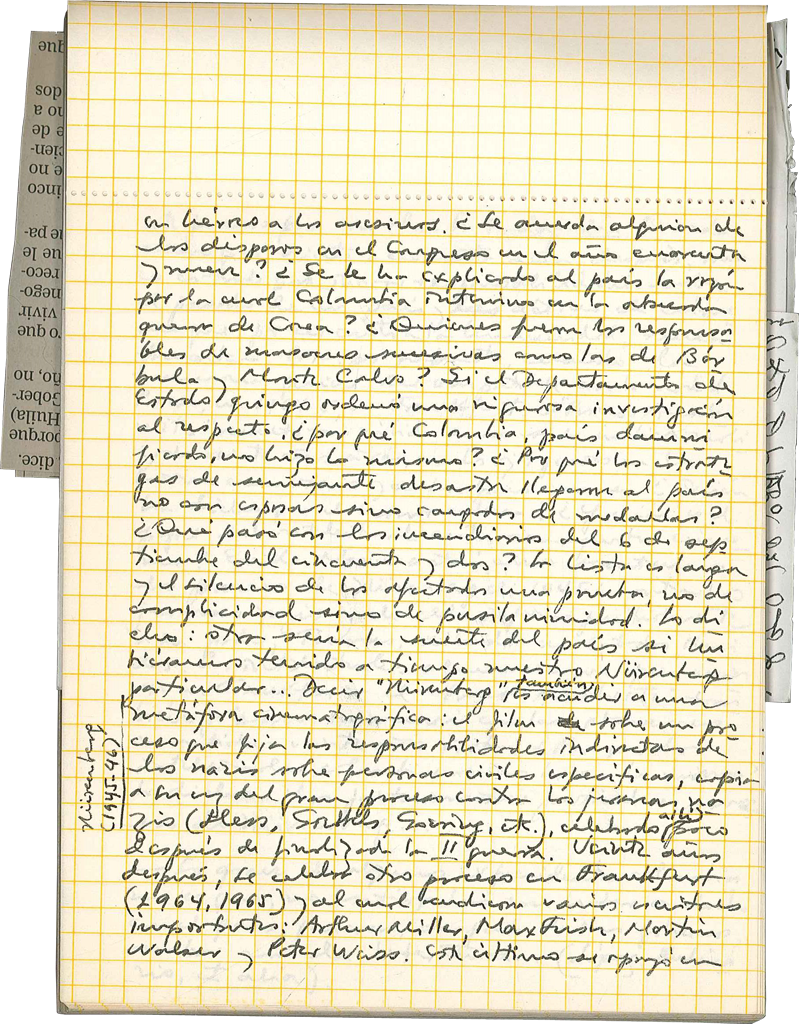 que
dos
no a
e de
cien-
e no
inco
e pa-
ue le
reco-
nego-
vivir
ro que
ño, no
Gober-
(Huila)
porque
dice.
a los asesinos. ¿Se acuerda alguien de
los disparos en el Congreso en el año cuarenta
y nueve? ¿Se le ha explicado al país la razón
por la cual Colombia intervino en la absurda
guerra de Corea? ¿Quiénes fueron los responsa
bles de masacres sucesivas como las de Bár
bula y Monte Calvo? Si el Departamento de
Estado gringo ordenó una rigurosa investigación
al respecto, ¿por qué Colombia, país damni
ficado, no hizo lo mismo? ¿Por qué los estrate
gas de semejante desastre llegaron al país
no con esposas sino cargados de medallas?
¿Qué pasó con los incendiarios del 6 de sep
tiembre del cincuenta y dos? La lista es larga
y el silencio de los afectados una prueba, no de
complicidad sino de pusilanimidad. Lo di
cho: otra sería la suerte del país si hu
biéramos tenido a tiempo nuestro Nüremberg
particular... Decir "Nüremberg" también es acudir a una
metáfora cinematográfica: el film sobre un pro
ceso que fija las responsabilidades indirectas de
los nazis sobre personas civiles específicas, copia
a su vez del gran proceso contra los jerarcas na
zis (Hess, Goebbels, Goering, etc.), celebrado allí poco
después de finalizada la II guerra. Veinte años
después, se celebró otro proceso en Frankfurt
(1964, 1965) y al cual acudieron varios escritores
importantes: Arthur Miller, Max Frish, Martin
Walser y Peter Weiss. Este último se apoyó en
Nüremberg
(1945-46)